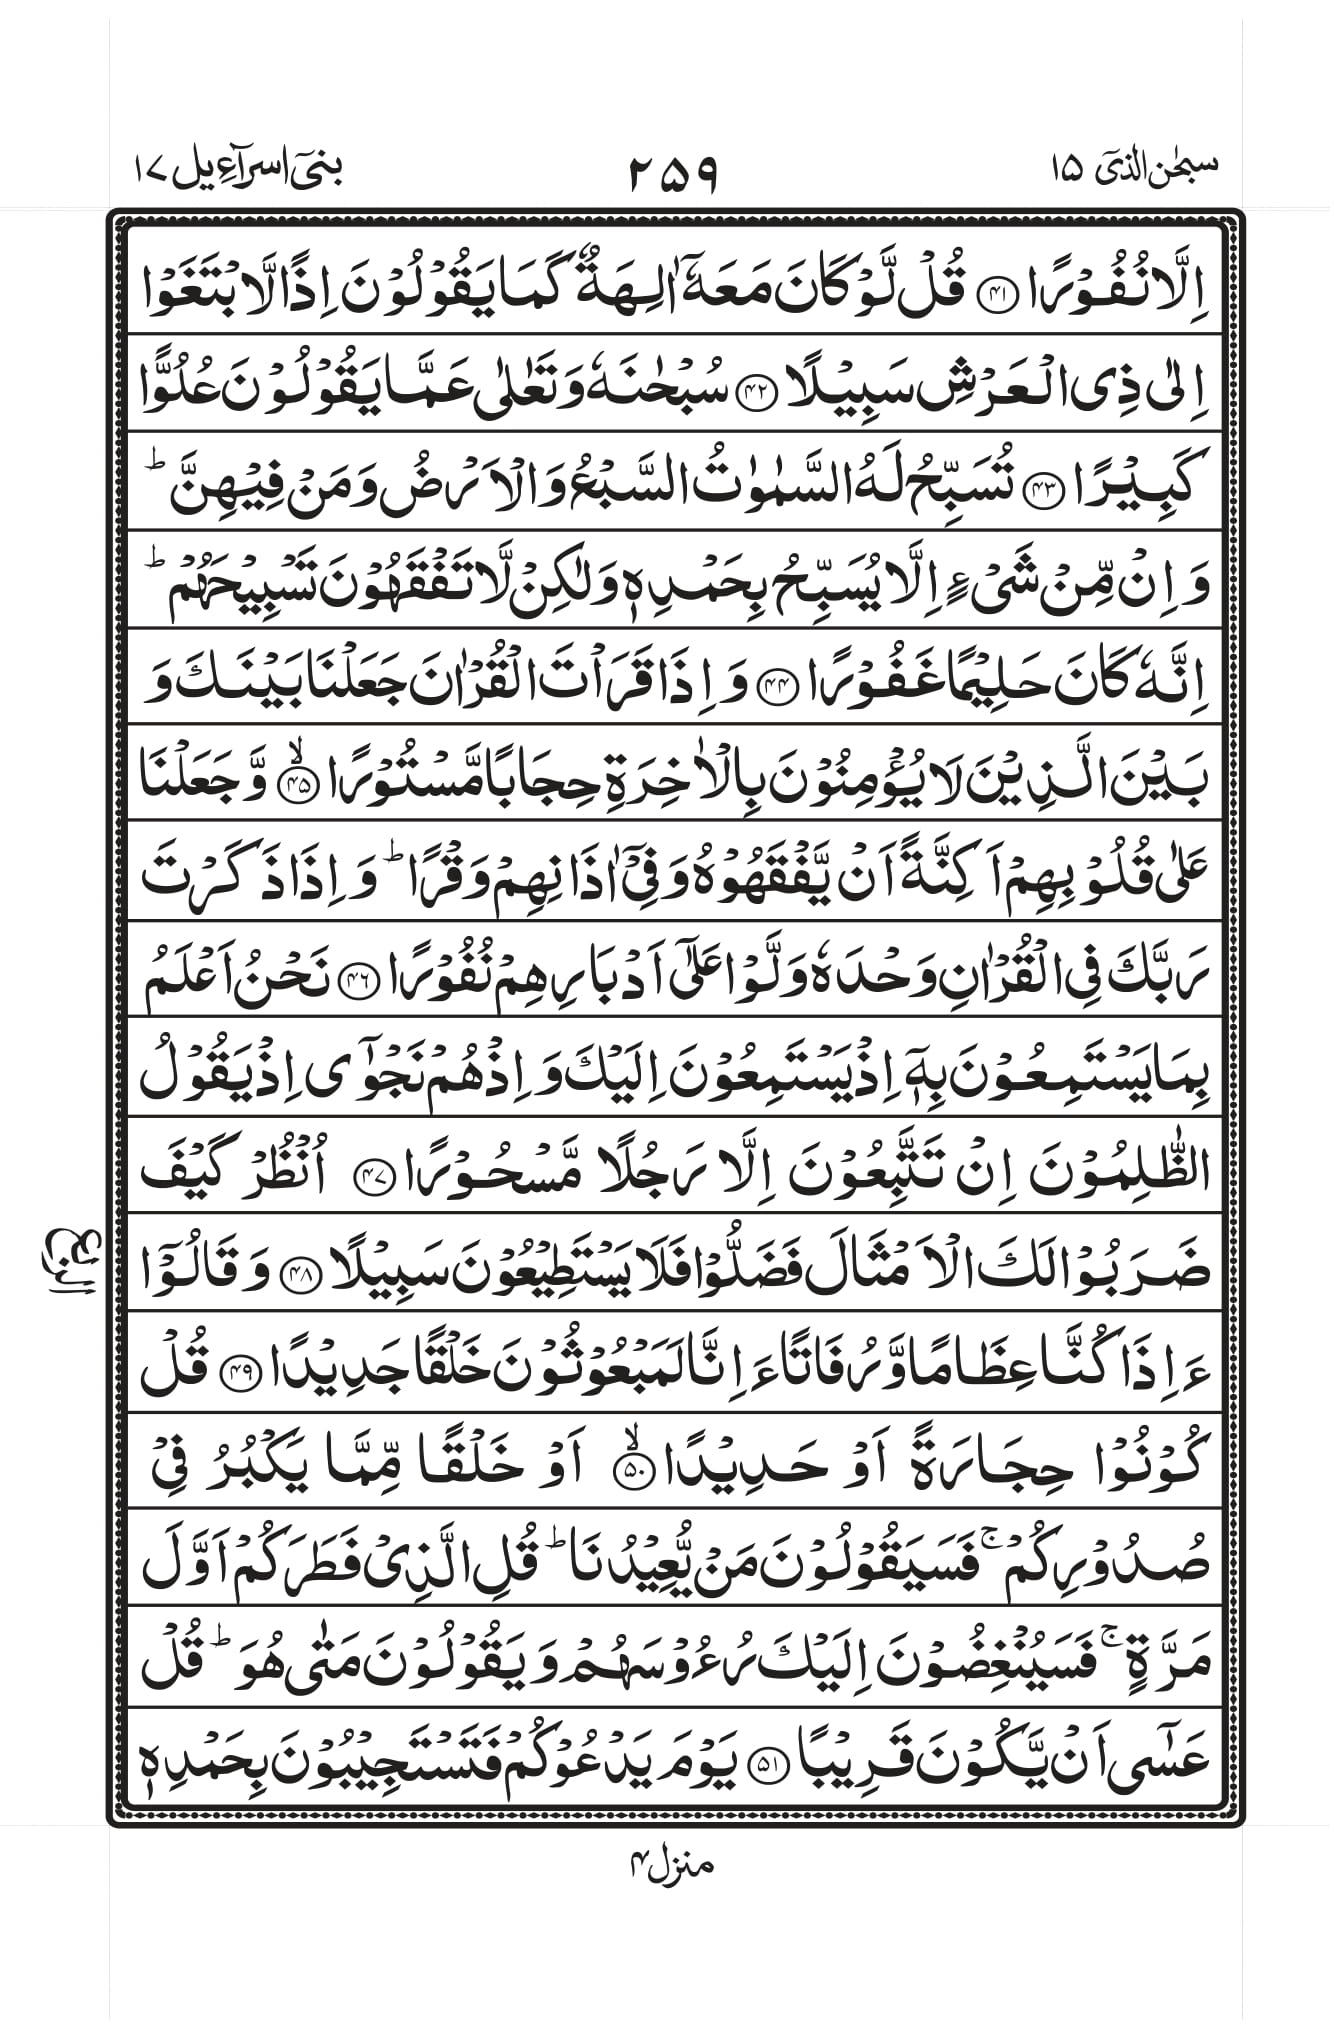 سبحٰن الذیٓ ۱۵
۲۵۹
بنیٓ اسرآءیل ۱۷
اِلَّا نُفُوْرًا ﴿۴۱﴾ قُلْ لَّوْ كَانَ مَعَهٗۤ اٰلِهَةٌ كَمَا یَقُوْلُوْنَ اِذًا لَّابْتَغَوْا
اِلٰى ذِی الْعَرْشِ سَبِیْلًا ﴿۴۲﴾ سُبْحٰنَهٗ وَ تَعٰلٰى عَمَّا یَقُوْلُوْنَ عُلُوًّا
كَبِیْرًا ﴿۴۳﴾ تُسَبِّحُ لَهُ السَّمٰوٰتُ السَّبْعُ وَ الْاَرْضُ وَ مَنْ فِیْهِنَّ ؕ
وَ اِنْ مِّنْ شَیْءٍ اِلَّا یُسَبِّحُ بِحَمْدِهٖ وَ لٰكِنْ لَّا تَفْقَهُوْنَ تَسْبِیْحَهُمْ ؕ
اِنَّهٗ كَانَ حَلِیْمًا غَفُوْرًا ﴿۴۴﴾ وَ اِذَا قَرَاْتَ الْقُرْاٰنَ جَعَلْنَا بَیْنَكَ وَ
بَیْنَ الَّذِیْنَ لَا یُؤْمِنُوْنَ بِالْاٰخِرَةِ حِجَابًا مَّسْتُوْرًا ﴿ۙ۴۵﴾ وَّ جَعَلْنَا
عَلٰى قُلُوْبِهِمْ اَكِنَّةً اَنْ یَّفْقَهُوْهُ وَ فِیْۤ اٰذَانِهِمْ وَقْرًا ؕ وَ اِذَا ذَكَرْتَ
رَبَّكَ فِی الْقُرْاٰنِ وَحْدَهٗ وَلَّوْا عَلٰۤى اَدْبَارِهِمْ نُفُوْرًا ﴿۴۶﴾ نَحْنُ اَعْلَمُ
بِمَا یَسْتَمِعُوْنَ بِهٖۤ اِذْ یَسْتَمِعُوْنَ اِلَیْكَ وَ اِذْ هُمْ نَجْوٰۤى اِذْ یَقُوْلُ
الظّٰلِمُوْنَ اِنْ تَتَّبِعُوْنَ اِلَّا رَجُلًا مَّسْحُوْرًا ﴿۴۷﴾ اُنْظُرْ كَیْفَ
ضَرَبُوْا لَكَ الْاَمْثَالَ فَضَلُّوْا فَلَا یَسْتَطِیْعُوْنَ سَبِیْلًا ﴿۴۸﴾ وَ قَالُوْۤا
ءَاِذَا كُنَّا عِظَامًا وَّ رُفَاتًا ءَاِنَّا لَمَبْعُوْثُوْنَ خَلْقًا جَدِیْدًا ﴿۴۹﴾ قُلْ
كُوْنُوْا حِجَارَةً اَوْ حَدِیْدًا ﴿ۙ۵۰﴾ اَوْ خَلْقًا مِّمَّا یَكْبُرُ فِیْ
صُدُوْرِكُمْ ۚ فَسَیَقُوْلُوْنَ مَنْ یُّعِیْدُنَا ؕ قُلِ الَّذِیْ فَطَرَكُمْ اَوَّلَ
مَرَّةٍ ۚ فَسَیُنْغِضُوْنَ اِلَیْكَ رُءُوْسَهُمْ وَ یَقُوْلُوْنَ مَتٰى هُوَ ؕ قُلْ
عَسٰۤى اَنْ یَّكُوْنَ قَرِیْبًا ﴿۵۱﴾ یَوْمَ یَدْعُوْكُمْ فَتَسْتَجِیْبُوْنَ بِحَمْدِهٖ
منزل ۴